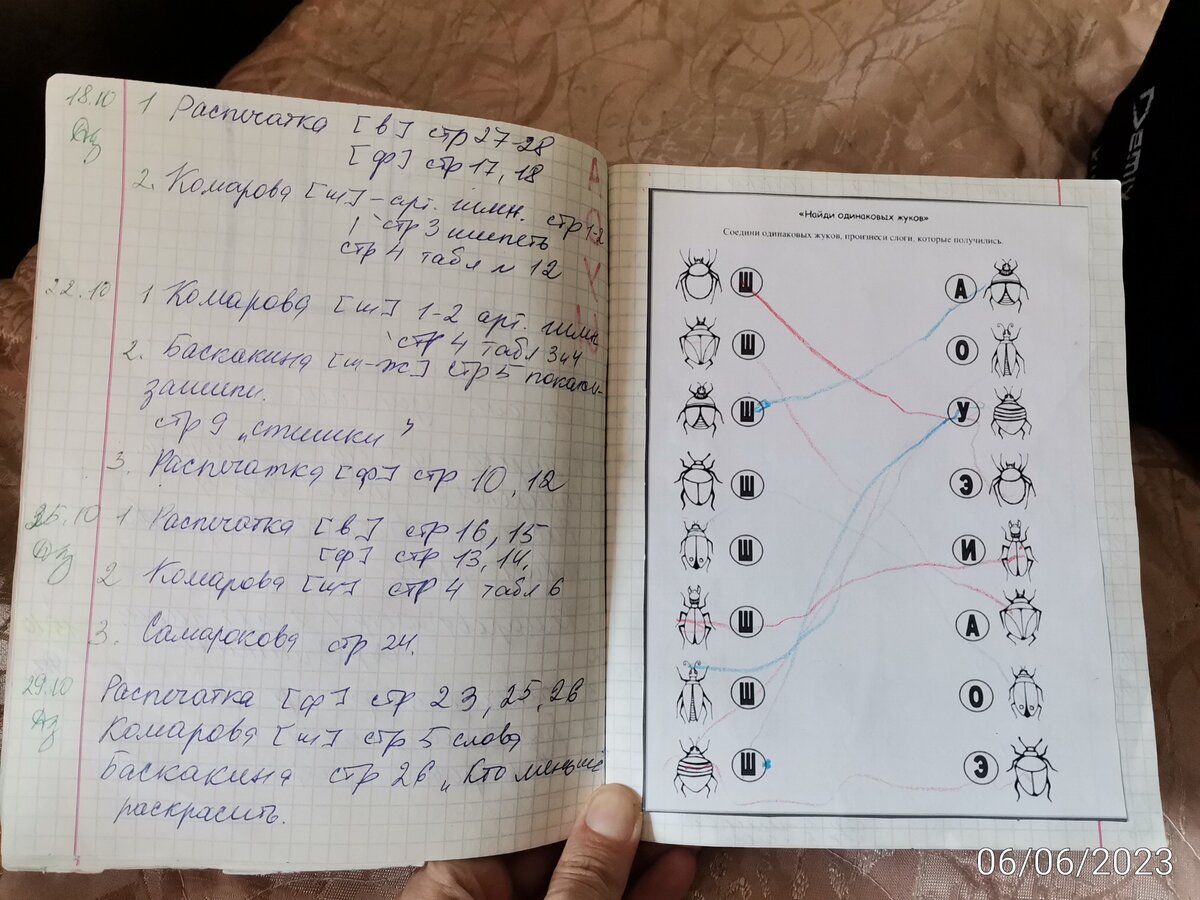 18.10 1 Распечатка [в] стр 27-28
Дз [ф] стр 17, 18
2. Комарова [ш] - арт. гимн. стр 1-2
стр 3 шипеть
стр 4 табл № 12
22.10 1 Комарова [ш] 1-2 арт. гимн.
стр 4 табл 3 и 4
2. Баскакина [ш-ж] стр 5
зашипи.
стр 9 „стишки"
3. Распечатка [ф] стр 10, 12
25.10 1 Распечатка [в] стр 16, 15
Дз [ф] стр 13, 14.
2 Комарова [ш] стр 4 табл 6
3. Самарокова стр 24.
29.10 Распечатка [ф] стр 23, 25, 26
Дз Комарова [ш] стр 5 слова
Баскакина стр 26 „Кто меньше
раскрасить.
А
О
У
«Найди одинаковых жуков»
Соедини одинаковых жуков, произнеси слоги, которые получились.
Ш А
Ш О
Ш У
Ш Э
Ш И
Ш А
Ш О
Ш Э
Demix
06/06/2023